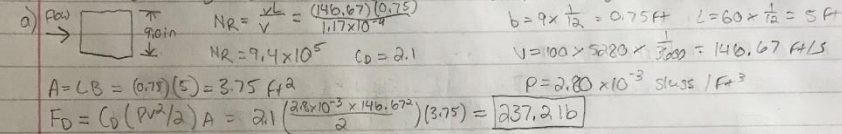 a) flow → 9.0in NR = VL/V = (146.67)(0.75)/1.17x10⁻⁴ b = 9 x 1/12 = 0.75ft L = 60 x 1/12 = 5 ft
NR = 9.4x10⁵ CD = 2.1 V = 100 x 5280 x 1/3600 = 146.67 ft/s
A = LB = (0.75)(5) = 3.75 ft² P = 2.80 x10⁻³ slugs / ft³
FD = CD (PV²/2) A = 2.1 (2.8x10⁻³ x 146.67²/2)(3.75) = 237.2 lb